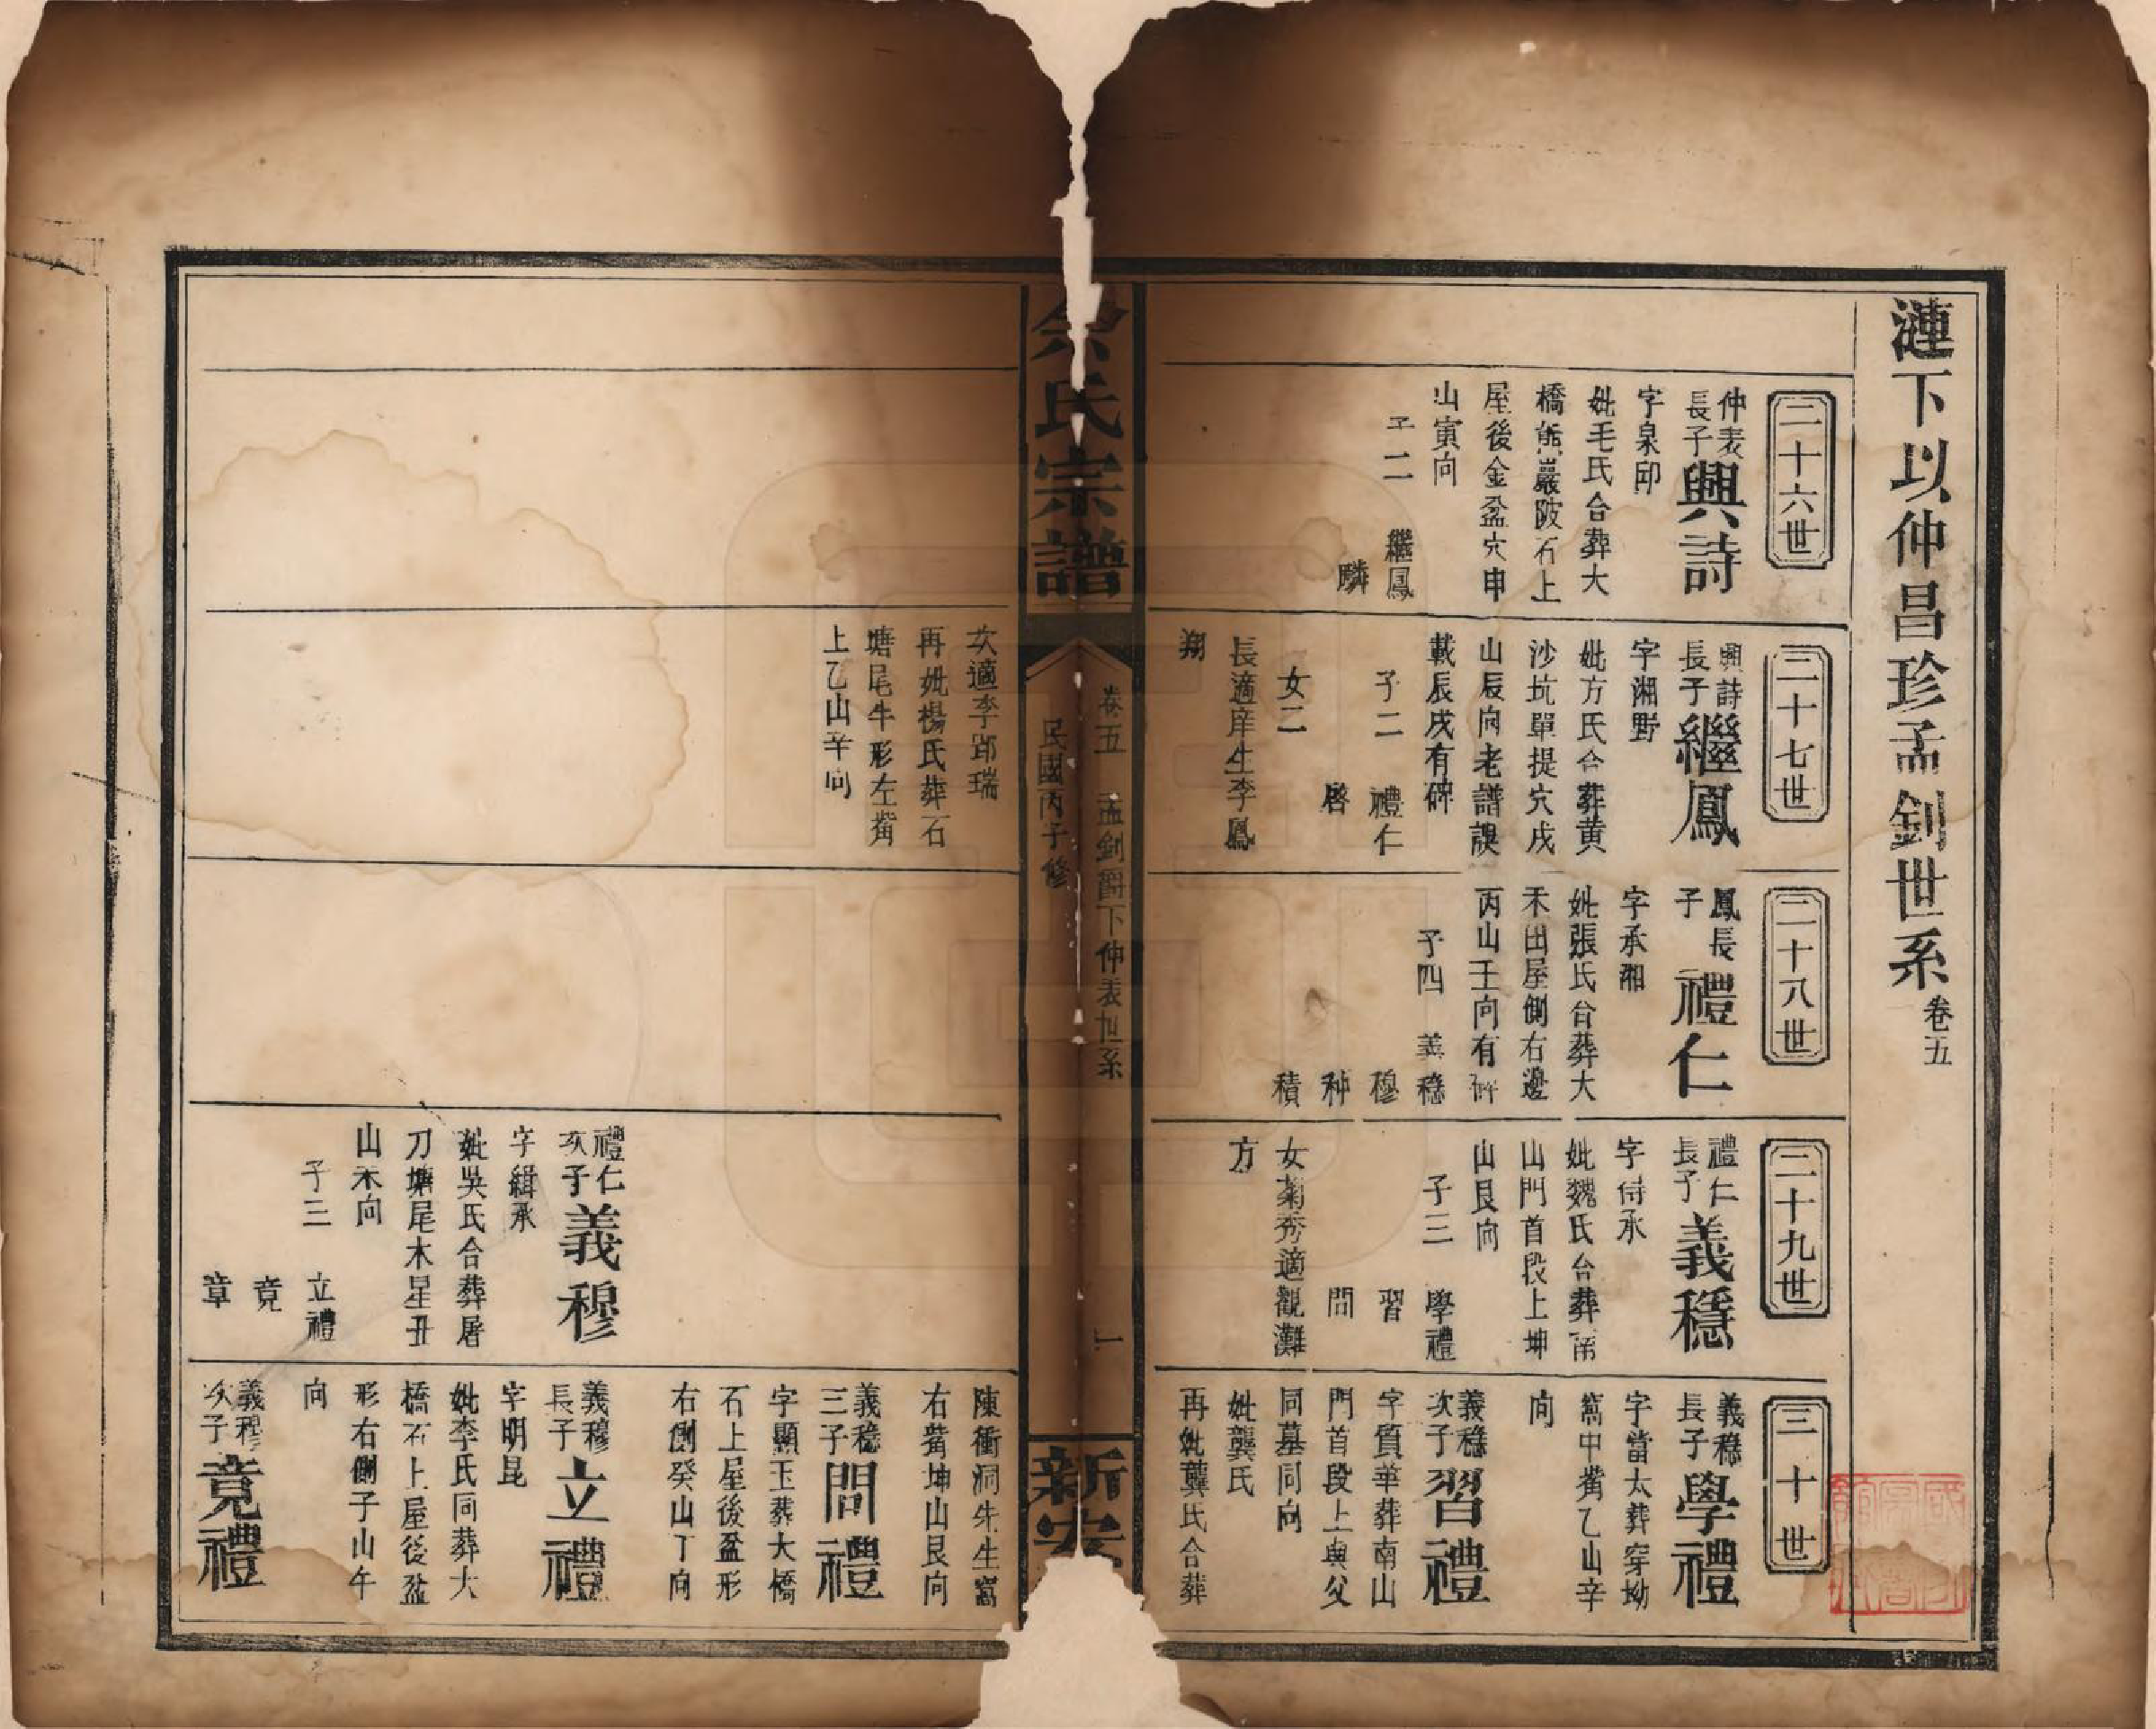 漣下以仲昌珍孟釗世系卷五
二十六世
仲表長子興詩
字泉邱
妣毛氏合葬大
橋熊巖陂石上
屋後金盆穴申
山寅向
子二 繼鳳
麟
二十七世
興詩長子繼鳳
字湘野
妣方氏合葬黄
沙坑單提穴戌
山辰向老譜誤
載辰戌有碑
子二 禮仁
啓
女二
長適庠生李鳳
翔
二十八世
鳳長子禮仁
字承湘
妣張氏合葬大
禾田屋側右邊
丙山壬向有碑
子四 義穩
穆
种
積
二十九世
禮仁長子義穩
字侍承
妣魏氏合葬南
山門首段上坤
山艮向
子三 學禮
習
問
女菊秀適觀灘
方
三十世
義穩長子學禮
字當太葬穿坳
篙中嘴乙山辛
向
義穩次子習禮
字質華葬南山
門首段上與父
同墓同向
妣龔氏
再妣龔氏合葬
余氏宗譜
卷五 孟釗爵下仲表世系
一
民國丙子修
新安
次適李郎瑞
再妣楊氏葬石
塘尾牛形左嘴
上乙山辛向
禮仁次子義穆
字緝承
妣吳氏合葬屠
刀塘尾木星丑
山未向
子三 立禮
竟
章
陳衝洞朱生窩
右嘴坤山艮向
義穩三子問禮
字顯玉葬大橋
石上屋後盆形
右側癸山丁向
義穆長子立禮
字明昆
妣李氏同葬大
橋石上屋後盆
形右側子山午
向
義穆次子竟禮